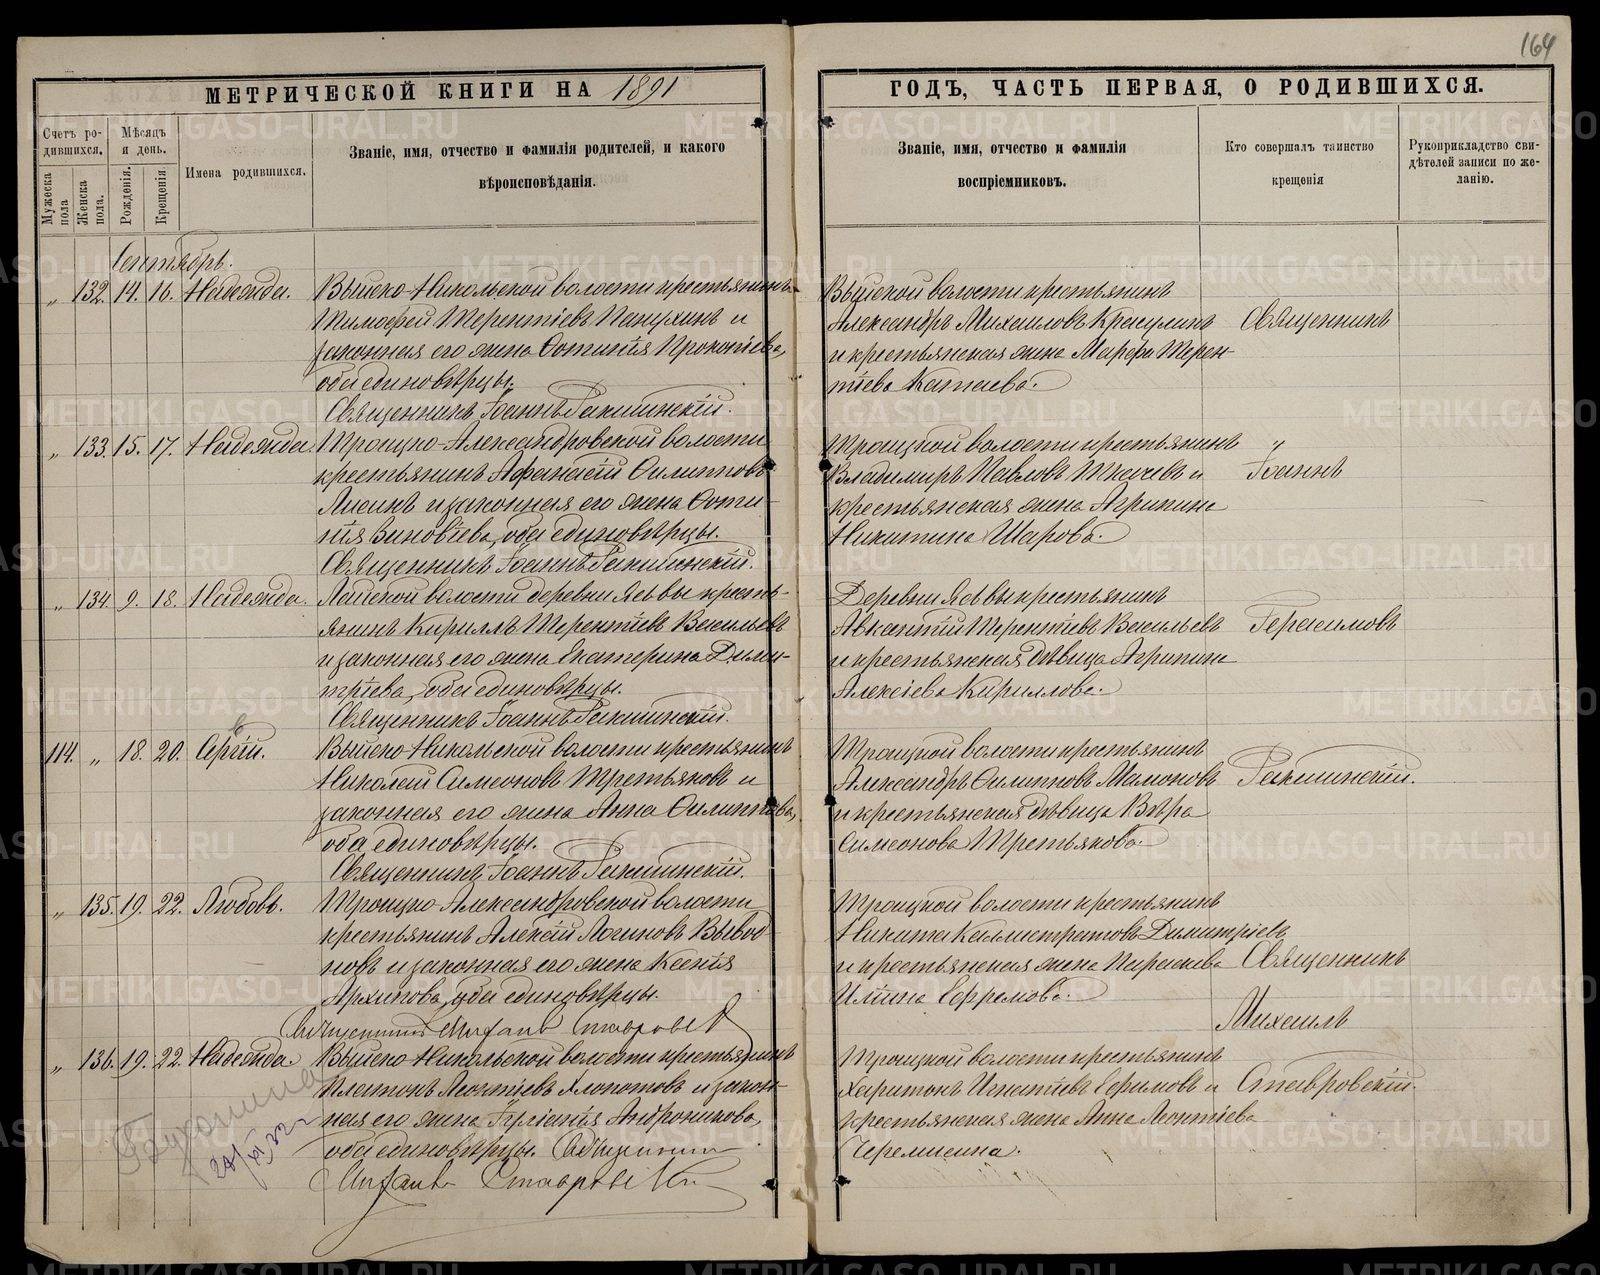 164
МЕТРИЧЕСКОЙ КНИГИ НА 1891
ГОДЪ, ЧАСТЬ ПЕРВАЯ, О РОДИВШИХСЯ.
Счетъ ро-
дившихся.
Мужеска
пола
Женска
пола.
Мѣсяцъ
и день.
Рожденія.
Крещенія.
Имена родившихся.
Званіе, имя, отчество и фамилія родителей, и какого
вѣроисповѣданія.
Званіе, имя, отчество и фамилія
воспріемниковъ.
Кто совершалъ таинство
крещенія
Рукоприкладство сви-
дѣтелей записи по же-
ланію.
Сентябрь.
„ 132. 14. 16. Надежда.
Выйско-Никольской волости крестьянинъ
Тимофей Терентіевъ Папулинъ и
законная его жена Фотинія Прокопіева,
оба единовѣрцы.
Священникъ Іоаннъ
Выйской волости крестьянинъ
Александръ Михаиловъ Красулинъ
и крестьянская жена Марфа Терен-
тіева Катаева.
Священникъ
„ 133. 15. 17. Надежда
Троицко-Александровской волости
крестьянинъ Афанасій Филипповъ
Лисинъ и законная его жена Фоти-
нія Зиновіева, оба единовѣрцы.
Священникъ Іоаннъ
Троицкой волости крестьянинъ
Владимиръ Павловъ Ткачевъ и
крестьянская жена Агрипина
Никитина Шарова.
„
Іоаннъ
„ 134. 9. 18. Надежда.
Лайской волости деревни Ясьвы кресть-
янинъ Кириллъ Терентіевъ Васильевъ
и законная его жена Екатерина Дими-
тріева, оба единовѣрцы.
Священникъ Іоаннъ
Деревни Ясьвы крестьянинъ
Авкентій Терентіевъ Васильевъ
и крестьянская дѣвица Агрипина
Алексіева Кириллова.
Герасимовъ
114. „ 18. 20. Сергій.
Выйско-Никольской волости крестьянинъ
Николай Симеоновъ Третьяковъ и
законная его жена Анна Филиппова,
оба единовѣрцы.
Священникъ Іоаннъ
Троицкой волости крестьянинъ
Александръ Филипповъ Мамоновъ
и крестьянская дѣвица Вѣра
Симеонова Третьякова.
„ 135. 19. 22. Любовь.
Троицко-Александровской волости
крестьянинъ Алексій Логиновъ Вывод
новъ и законная его жена Ксенія
Архипова, оба единовѣрцы.
Священникъ Михаилъ Ставровскій
Троицкой волости крестьянинъ
Никита Каллистратовъ Димитріевъ
и крестьянская жена Параскева
Иліина Ефремова.
Священникъ
Михаилъ
„ 136. 19. 22. Надежда.
Выйско-Никольской волости крестьянинъ
Платонъ Леонтіевъ Хлопотовъ и закон-
ная его жена Іуліанія Андроникова,
оба единовѣрцы. Священникъ
Михаилъ Ставровскій
Троицкой волости крестьянинъ
Харитонъ Игнатіевъ Ефимовъ и
крестьянская жена Анна Леонтіева
Черемисина.
Ставровскій.
METRIKI.GASO-URAL.RU